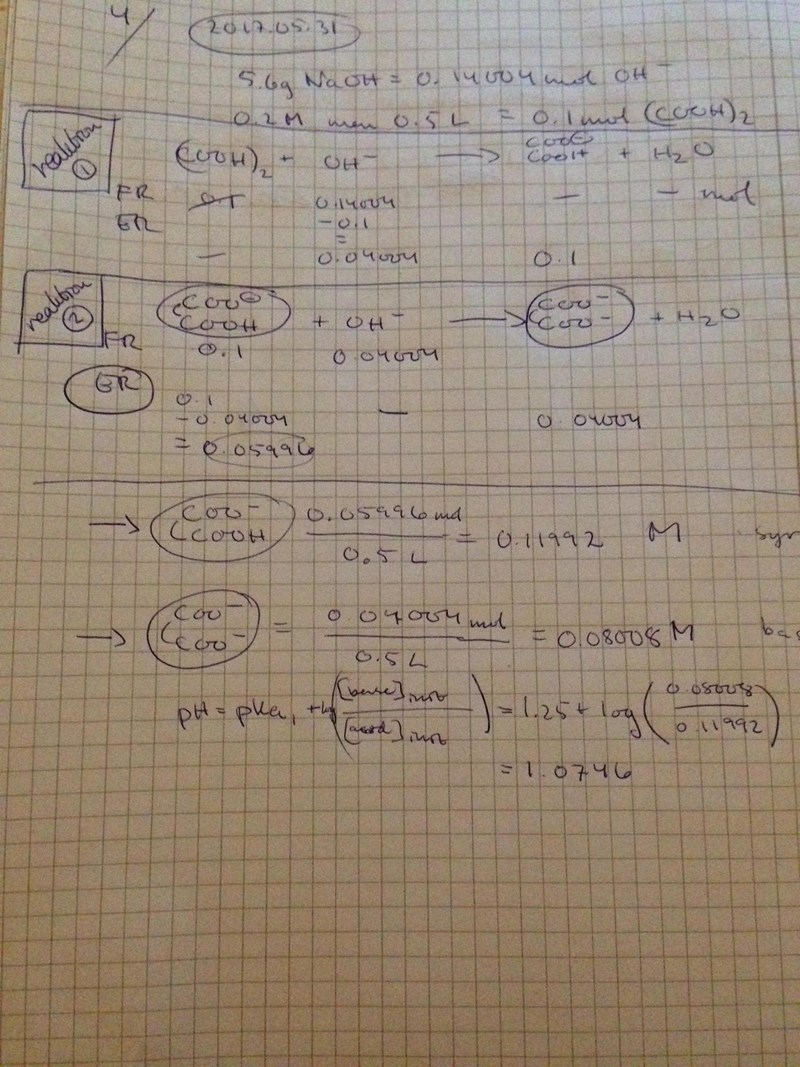 4/ 2017.05.31
5.6g NaOH = 0.14004 mol OH⁻
0.2M men 0.5L = 0.1 mol (COOH)₂
reaktion ①
(COOH)₂ + OH⁻ → COO⊖ COOH + H₂O
FR 0.1 0.14004 — — mol
ER -0.1
=
— 0.04004 0.1
reaktion ②
COO⊖ COOH + OH⁻ → COO⁻ COO⁻ + H₂O
FR 0.1 0.04004
ER 0.1
-0.04004 — 0.04004
= 0.05996
→ COO⁻ COOH 0.05996 mol / 0.5 L = 0.11992 M syr
→ COO⁻ COO⁻ = 0.04004 mol / 0.5 L = 0.08008 M bas
pH = pKa₁ + lg ([base] / [acid]) = 1.25 + log (0.08008 / 0.11992)
= 1.0746